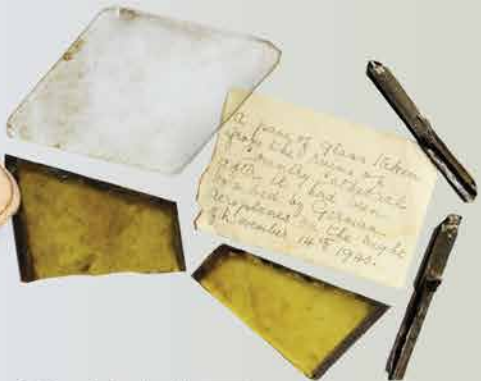 A pane of glass taken
from the ruins of
Coventry Cathedral
after it had been
bombed by German
aeroplanes on the night
of November 14th 1940.